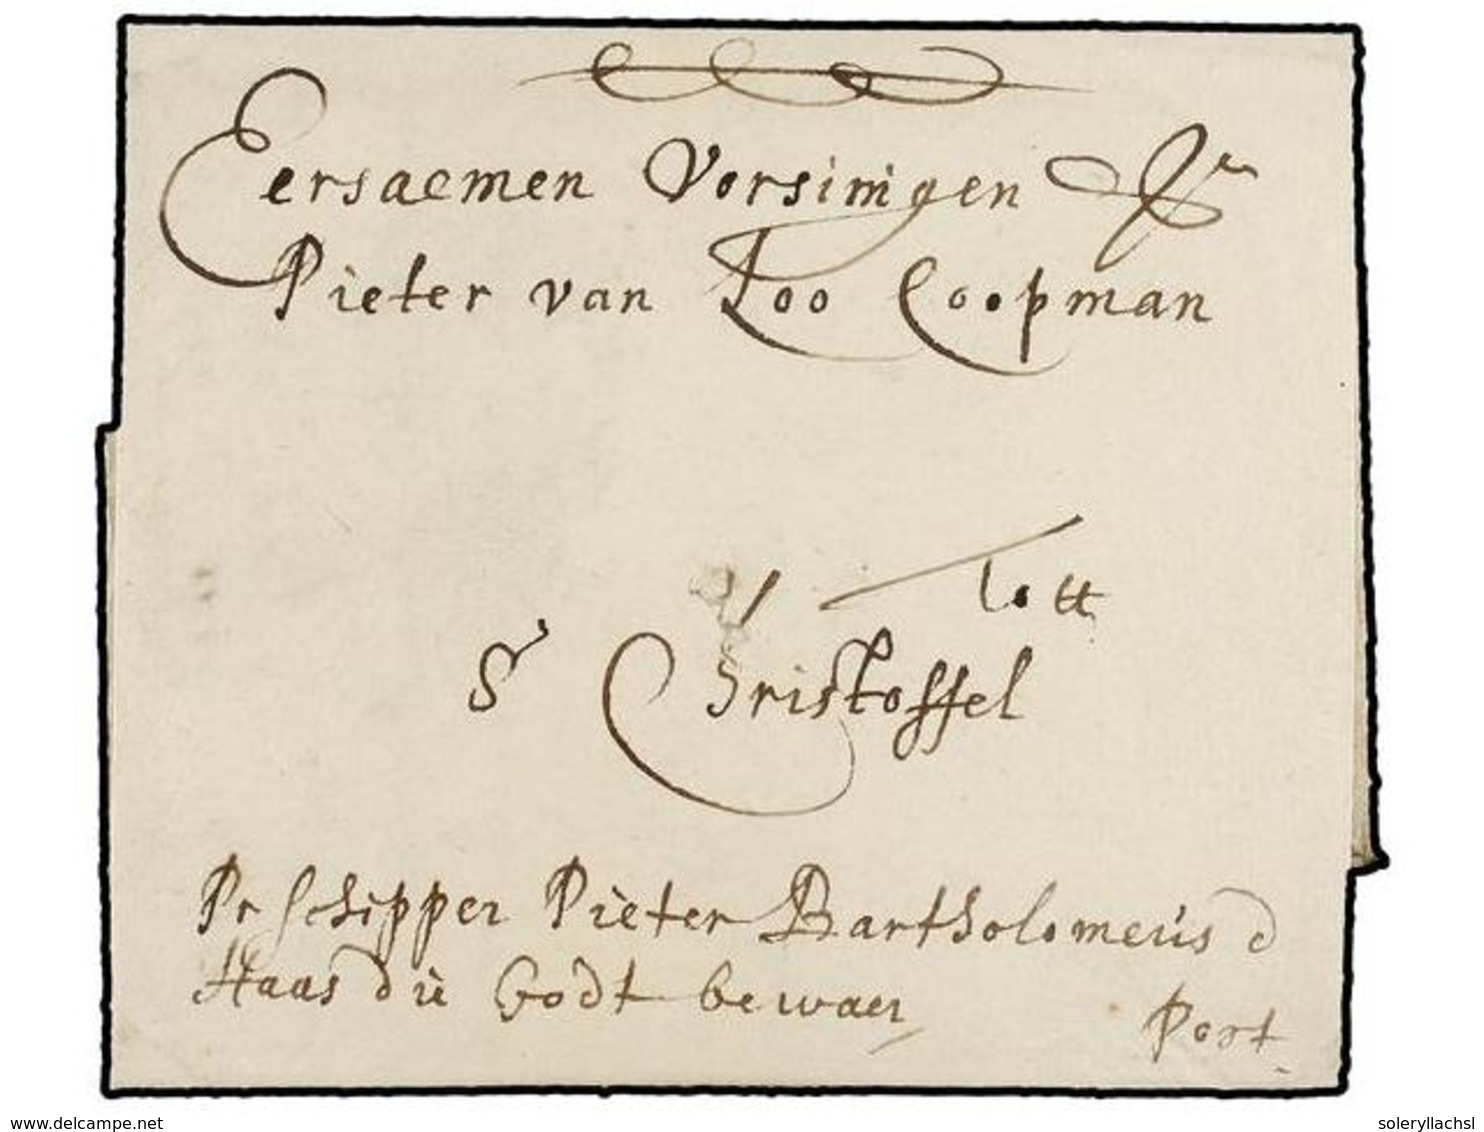 Eersaemen Vorsinigen Sr
Pieter van Loo Coopman
Tott
Sr Christoffel
Pr Schipper Pieter Bartholomeüs d
Haas die Godt bewaer
Port
www.delcampe.net
soleryllachsl